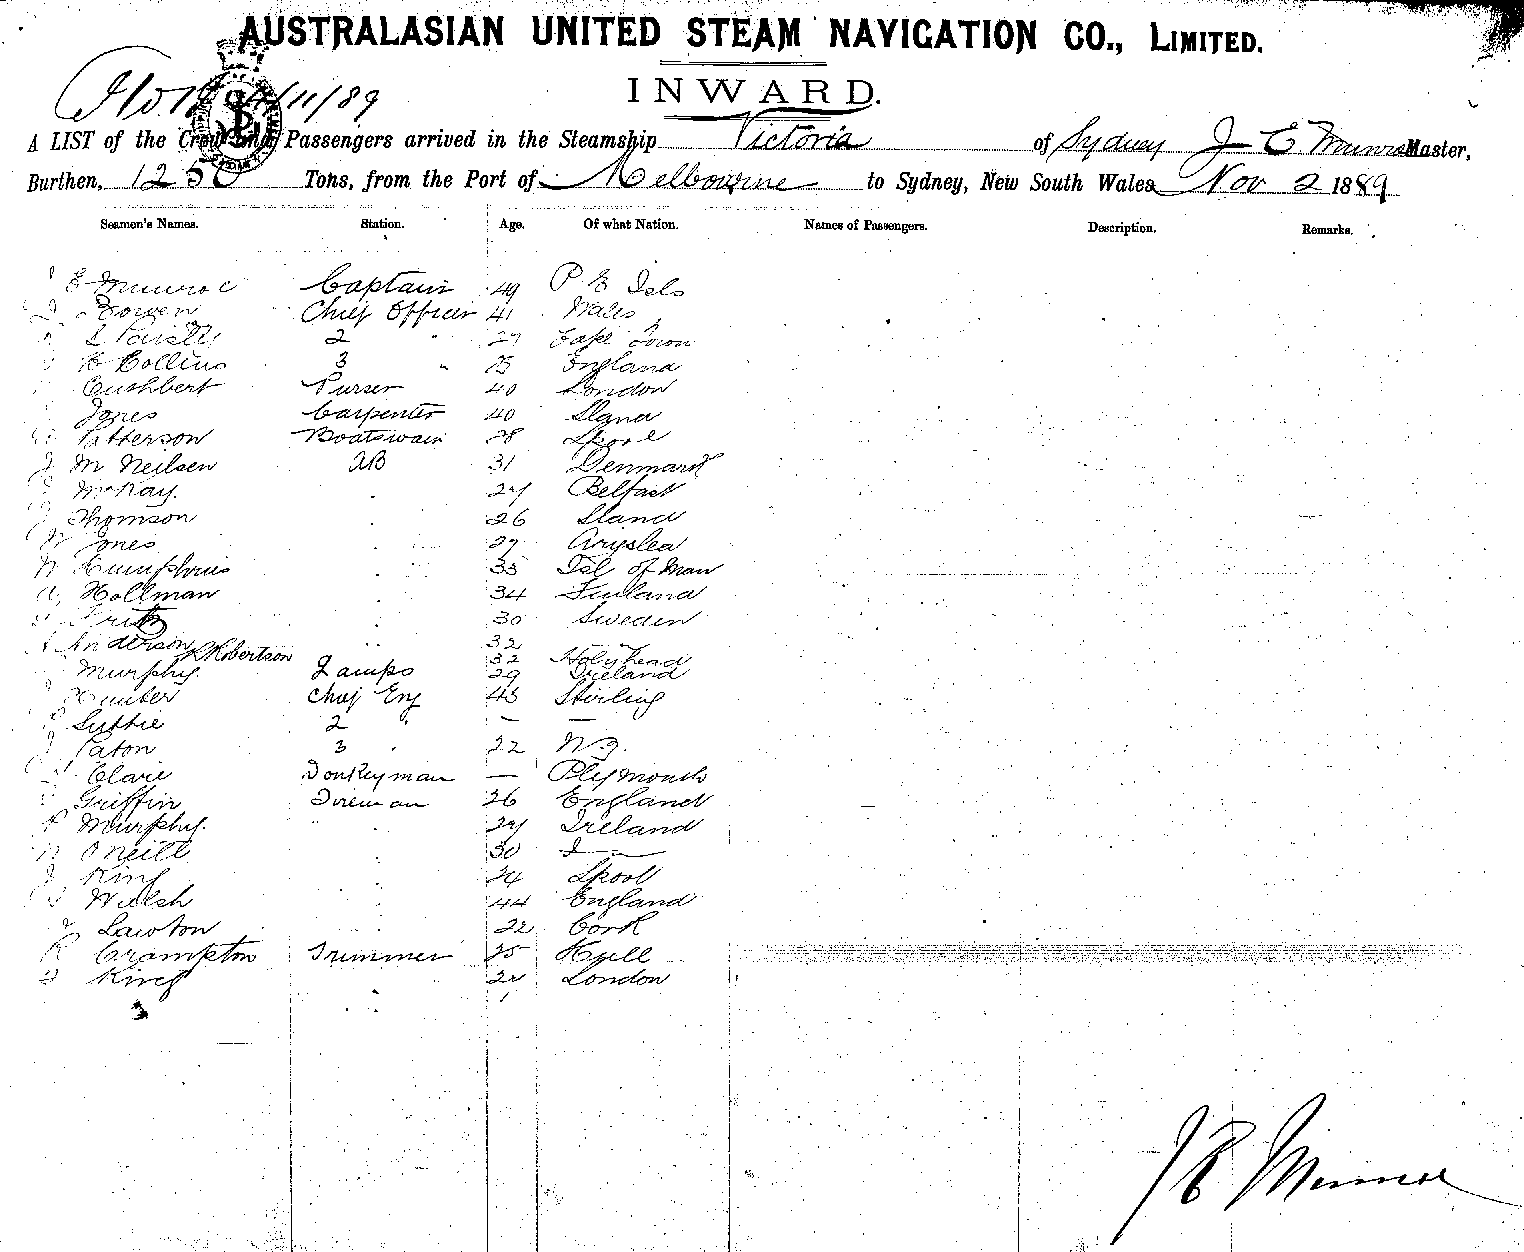 AUSTRALASIAN UNITED STEAM NAVIGATION CO., LIMITED.
INWARD.
4/11/89
A LIST of the Crew and Passengers arrived in the Steamship Victoria of Sydney J E Munro Master,
Burthen, 1250 Tons, from the Port of Melbourne to Sydney, New South Wales Nov 2 1889
Seamen's Names. Station. Age. Of what Nation. Names of Passengers. Description. Remarks.
E Munroe Captain 49 P E Isls
Bowen Chief Officer 41 Wales
2 " 27 Cape Town
Collins 3 " England
Cuthbert Purser 40 London
Jones Carpenter 40
Patterson Boatswain 28 Lpool
J M Neilsen AB 31 Denmark
McKay. 27 Belfast
J Thomson 26
W Jones 27
W Humphries 35 Isl of Man
Hollman 34 Finland
30 Sweden
A Anderson 32
R Robertson 32 Holyhead
Murphy. Lamps 29 Ireland
Hunter Chief Eng 45 Stirling
Luttie 2 " — —
J Paton 3 " 22 N Z.
Clare Donkeyman — Plymouth
Griffin Fireman 26 England
P Murphy. 27 Ireland
O'Neill 30 I —
J King 24 Lpool
Welsh 44 England
J Lawton 22 Cork
R Crampton Trimmer 25 Hull
King London
J E Munroe